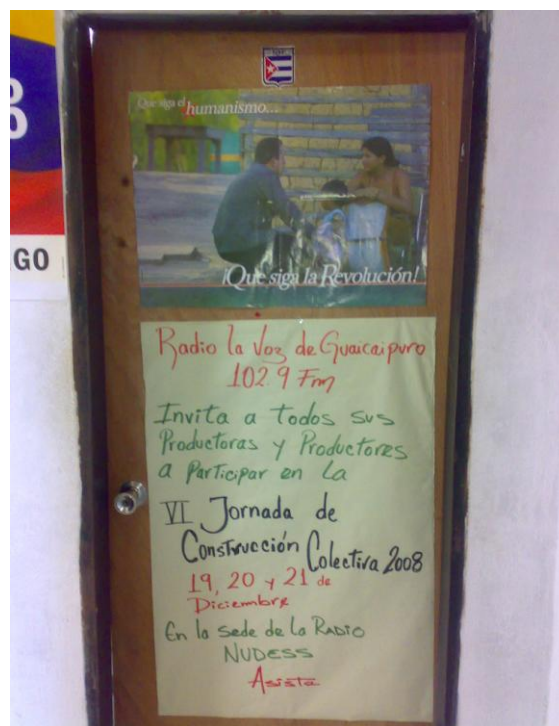 GO
Que siga el
humanismo...
¡Que siga la Revolución!
Radio la Voz de Guaicaipuro
102.9 Fm
Invita a todos sus
Productoras y Productores
a Participar en La
VI Jornada de
Construcción Colectiva 2008
19, 20 y 21 de
Diciembre
En la sede de la Radio
NUDESS
Asista